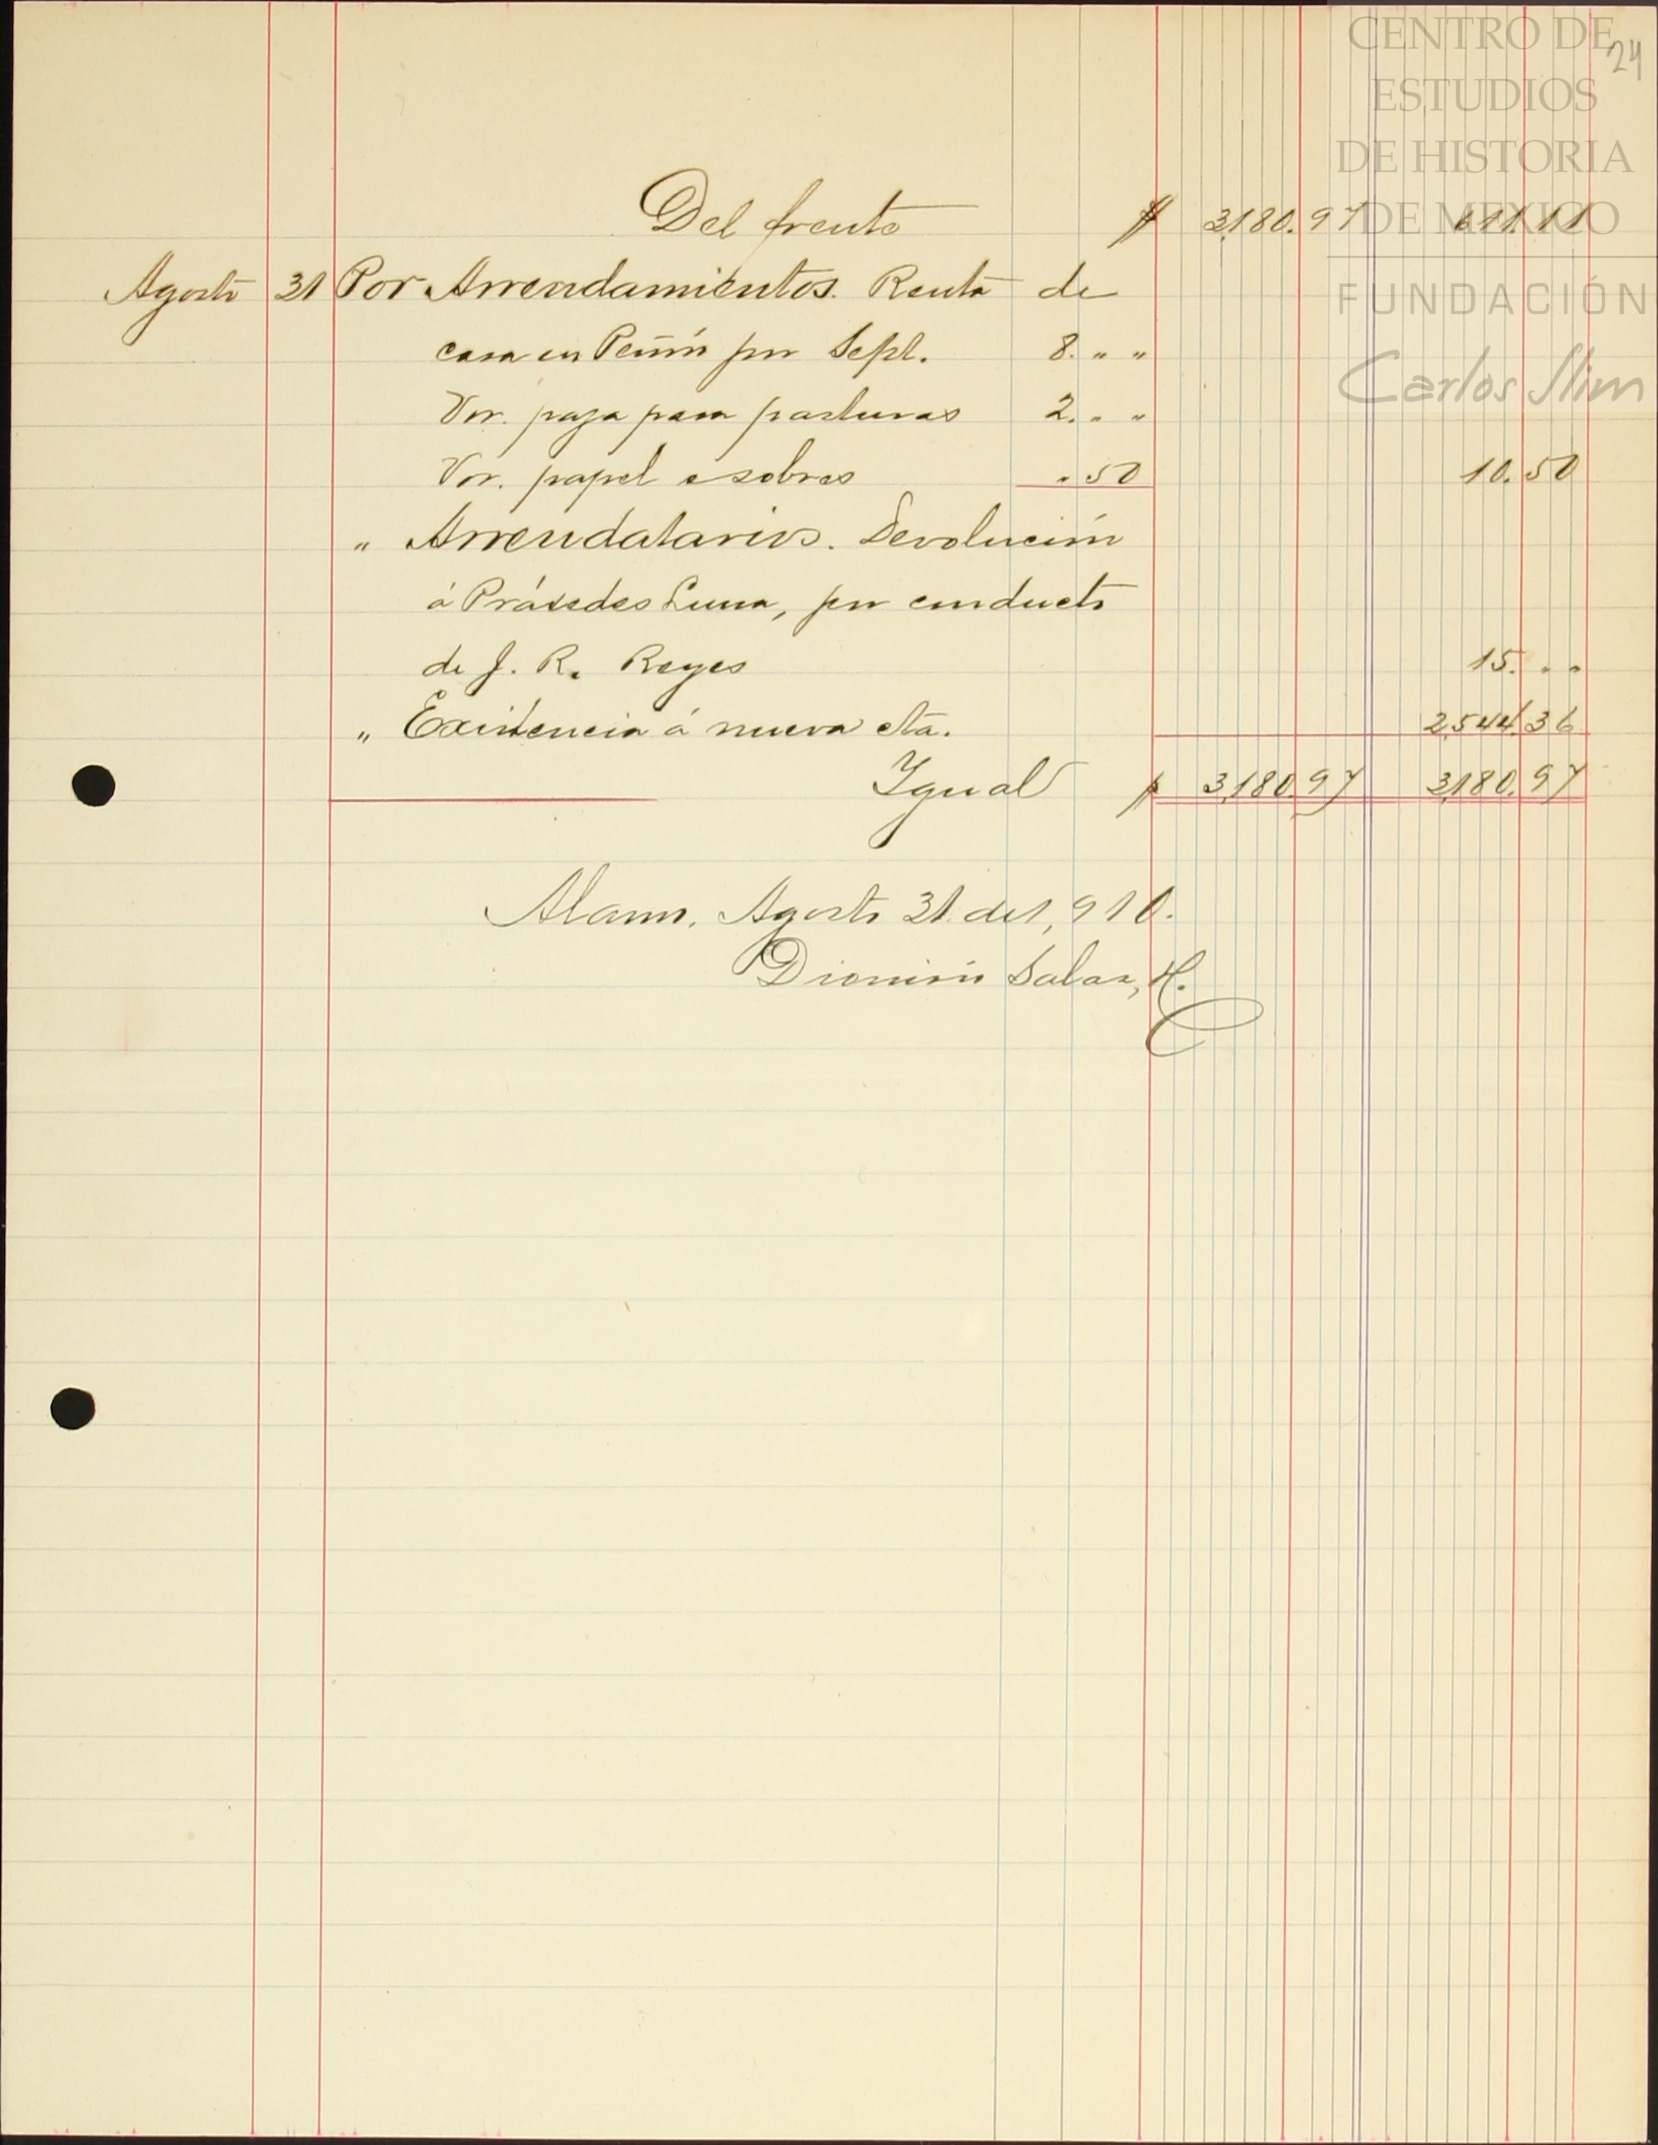 CENTRO DE
ESTUDIOS
DE HISTORIA
DE MEXICO
FUNDACIÓN
Carlos Slim
24
Del frente $ 3,180.97 611.11
Agosto 31 Por Arrendamientos. Renta de
casa en Peñón por Sept. 8. " "
Vor. paja para pasturas 2. " "
Vor. papel e sobres " 50 10.50
" Arrendatarios. Devolución
á Práxedes Luna, por conducto
de J. R. Reyes 15. " "
" Existencia á nueva cta. 2,544.36
Igual $ 3,180.97 3,180.97
Alamo, Agosto 31 de 1,910.
Dionisio Salas, H.